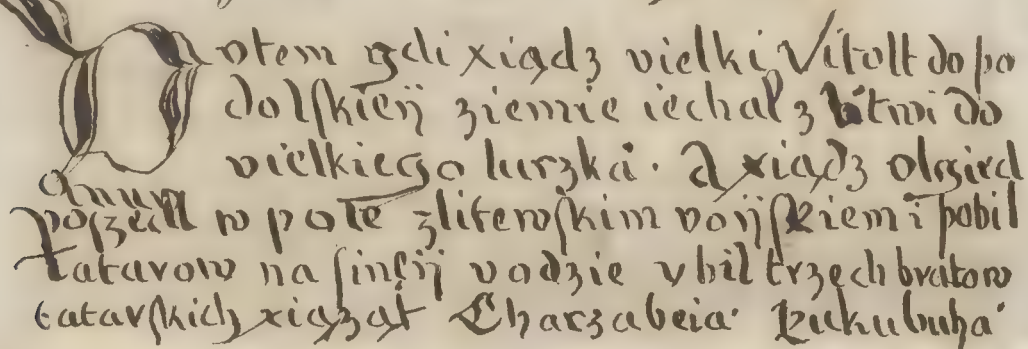 Potem gdi xiądz vielki Vitolt do po
dolſkieÿ ziemie iechał z litwi do
vielkiego lurzka. A xiądz olgierd
poſzedł w pole zlitewſkim voÿſkiem i pobil
tatarow na ſineÿ vodzie vbil trzech bratow
tatarſkich xiąząt Charzabeia